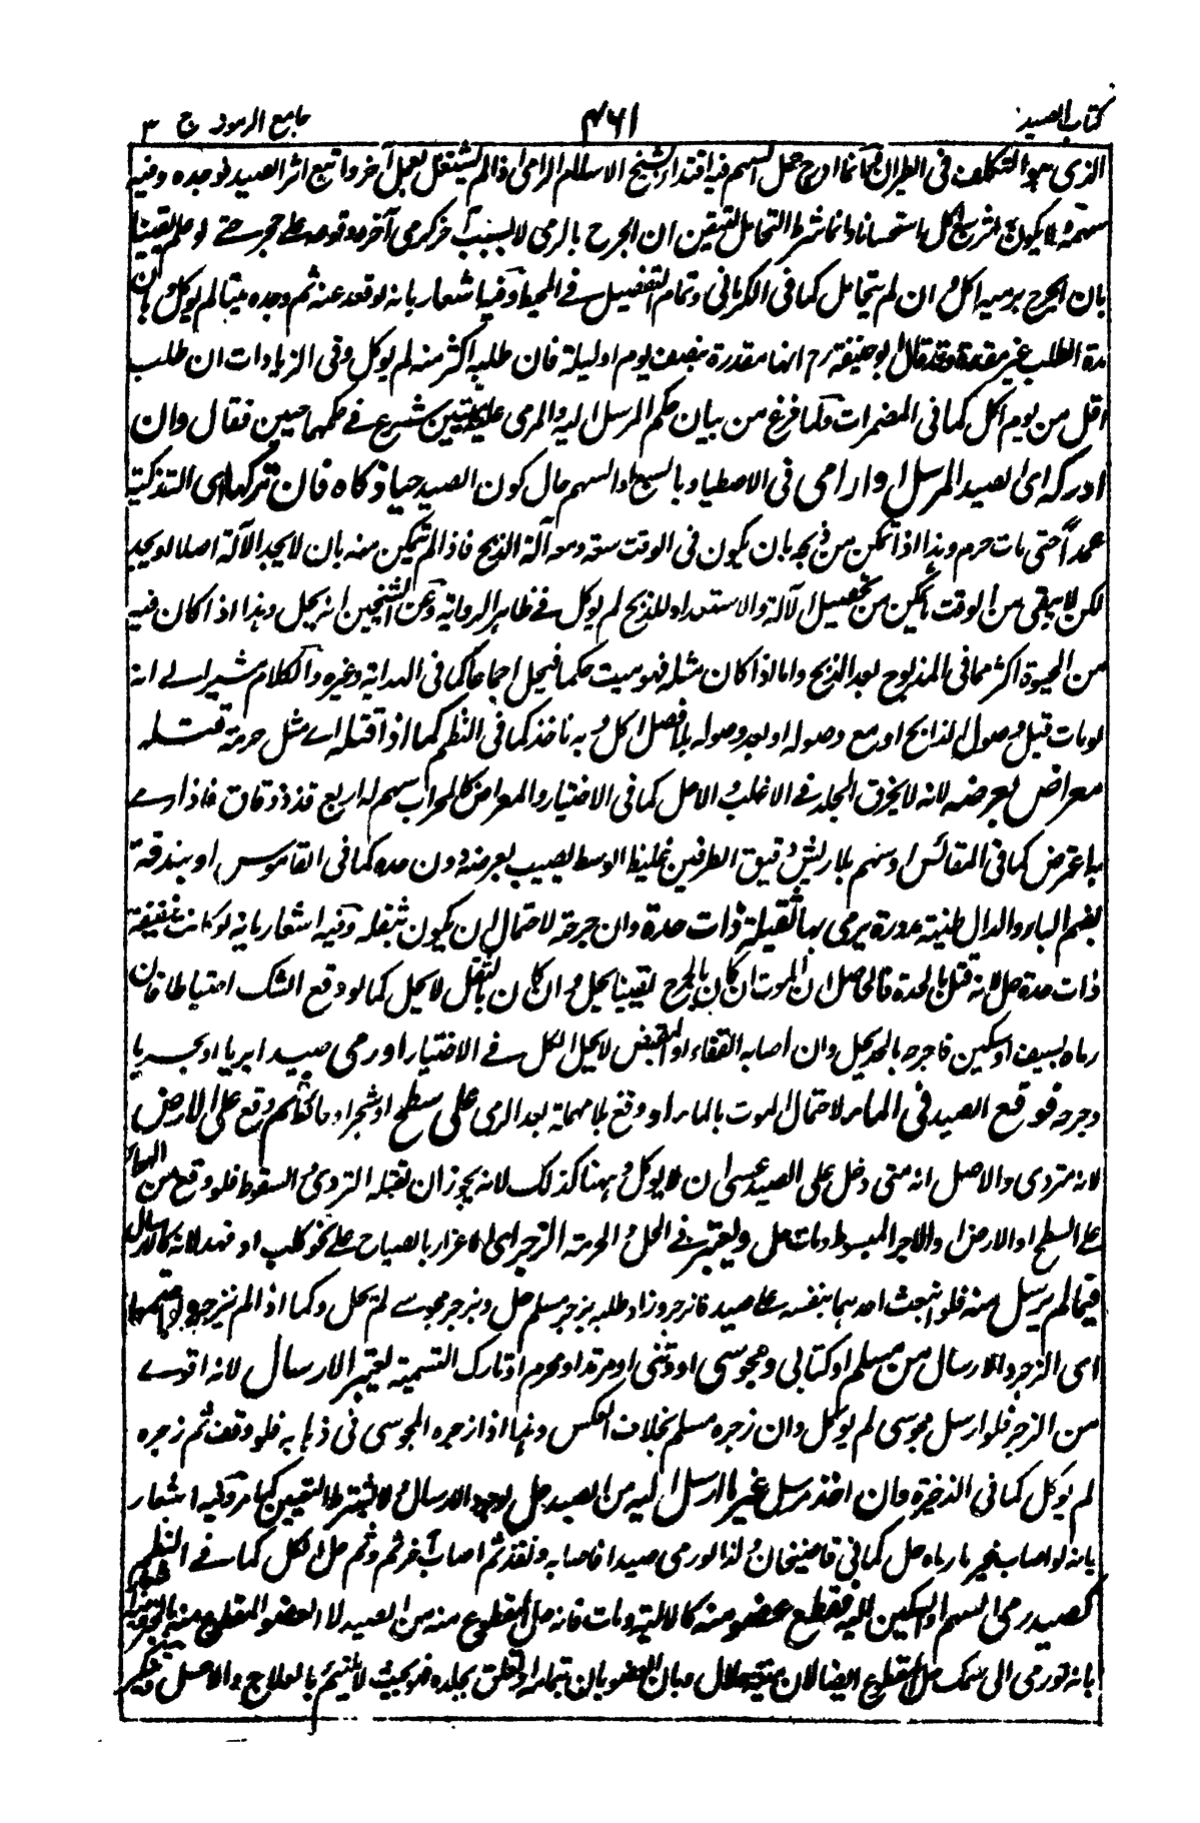 كتاب الصيد
٤٦١
جامع الرموز ج ٣
الذى هو التكلف فى الطيران حل السهم فيه اقتداء بشيخ الاسلام الرامى اذا لم يشتغل بعمل آخر واتبع اثر الصيد فوجده وفيه
سهمه لا يكون اثر سبع اكل استحسانا وانما شرط التحامل لتيقن ان الجرح بالرمى لا بسبب آخر كرمى آخر ووقوعه على حجر حتى لو علم يقينا
بان الجرح برميه اكل وان لم يتحامل كما فى الكرمانى وتمام التفصيل فى المحيط وفيه اشعار بانه لو قعد عنه ثم وجده ميتا لم يوكل وبان
مدة الطلب غير مقدرة وقد قال ابو حنيفة رح انها مقدرة بنصف يوم او ليلة فان طلبه اكثر منه لم يوكل وفى الزيادات ان طلب
اقل من يوم اكل كما فى المضمرات ولما فرغ من بيان حكم المرسل اليه والمرمى عليه ميتين شرع فى حكمهما حيين فقال وان
ادركه اى الصيد المرسل او الرامى فى الاصطياد بالسبع او السهم حال كون الصيد حيا ذكاه فان تركها اى التذكية
عمداً حتى مات حرم وهذا اذا تمكن من ذبحه بان يكون فى الوقت سعة ومعه آلة الذبح فاذا لم يتمكن منه بان لا يجد الآلة اصلا او يجد
لكن لا يبقى من الوقت ما يمكن من تحصيل الآلة والاستعداد للذبح لم يوكل فى ظاهر الرواية وعن الشيخين انه يحل وهذا اذا كان فيه
من الحيوة اكثر مما فى المذبوح بعد الذبح واما اذا كان مثله فهو ميت حكما فيحل اجماعا كما فى الهداية وغيره والكلام مشير الى انه
لو مات قبل وصول الذابح او مع وصوله او بعد وصوله بلا فصل اكل وبه ناخذ كما فى النظم كما اذا قتله اى مثل حرمة قتله
معراض بعرضه لانه لا يخرق الجلد فى الاغلب والاصل كما فى الاختيار والمعراض كالمحراب سهم له اربع قذذ دقاق فاذا رمى
به اعترض كما فى المقائس او سهم بلا ريش دقيق الطرفين غليظ الوسط يصيب بعرضه دون حده كما فى القاموس او بندقة
بضم الباء والدال طينة مدورة يرمى بها ثقيلة ذات حدة وان جرحه لاحتمال ان يكون بثقله وفيه اشعار بانه لو كانت خفيفة
ذات حدة حل لانه قتل بالحدة فالحاصل ان الموت ان كان بالجرح يقينا يحل وان كان بالثقل لا يحل كما لو وقع الشك احتياطا فان
رماه بسيف او سكين فاجرحه بالحد يحل وان اصابه القفاء او المقبض لا يحل الكل فى الاختيار او رمى صيدا بريا او بحريا
وجرحه فوقع الصيد فى الماء لاحتمال الموت بالماء او وقع بلا مهملة بعد الرمى على سطح او شجر او حائط ثم وقع على الارض
لانه متردى والاصل انه متى دخل على الصيد عسى ان لا يوكل وههنا كذلك لانه يجوز ان يقتله التردى والسقوط فلو وقع من الهواء
على السطح او الارض او الاجر المبسوط ومات حل ويعتبر فى الحل والحرمة الزجر اى الاغراء بالصياح على نحو كلب او فهد لانه كالارسال
فيما لم يرسل منه فلو انبعث احدهما بنفسه على صيد فانزجر وزاد طلبه بزجر مسلم حل وبزجر مجوسى لم يحل وكما اذا لم ينزجر
اى الزجر والارسال من مسلم او كتابى ومجوسى او وثنى او مرتد او محرم او تارك التسمية يعتبر الارسال لانه اقوى
من الزجر فلو ارسل مجوسى لم يوكل وان زجره مسلم بخلاف العكس وهذا اذا زجره المجوسى فى ذهابه فلو وقف ثم زجره
لم يوكل كما فى الذخيرة وان اخذ مرسل غير ما ارسل اليه من الصيد حل لوجود الارسال ولا يشترط التعيين كما مر وفيه اشعار
بانه لو اصاب غير ما رماه حل كما فى قاضيخان وكذا لو رمى صيدا فاصابه ونفذ ثم اصاب آخر ثم وثم حل الكل كما فى النظم
كصيد رمى السهم او السكين اليه فقطع عضو منه كالالية ومات فانه حل المقطوع منه من الصيد لا العضو المقطوع منه
بانه لو رمى الى سمك حل المقطوع ايضا لان ميتته حلال وبان العضو بان بتمامه او تعلق بجلده فهو بحيث لا يلتئم بالعلاج والاصل